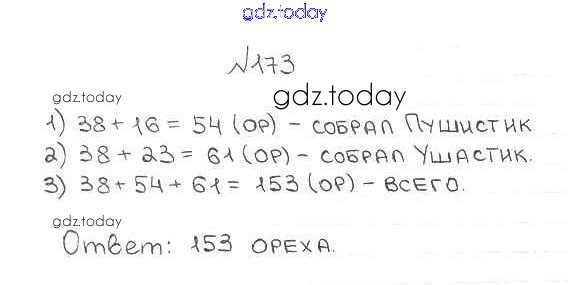 gdz.today
№173
gdz.today
gdz.today
1) 38 + 16 = 54 (ОР) - СОБРАЛ ПУШИСТИК
2) 38 + 23 = 61 (ОР) - СОБРАЛ УШАСТИК.
3) 38 + 54 + 61 = 153 (ОР) - ВСЕГО.
gdz.today
Ответ: 153 ОРЕХА.